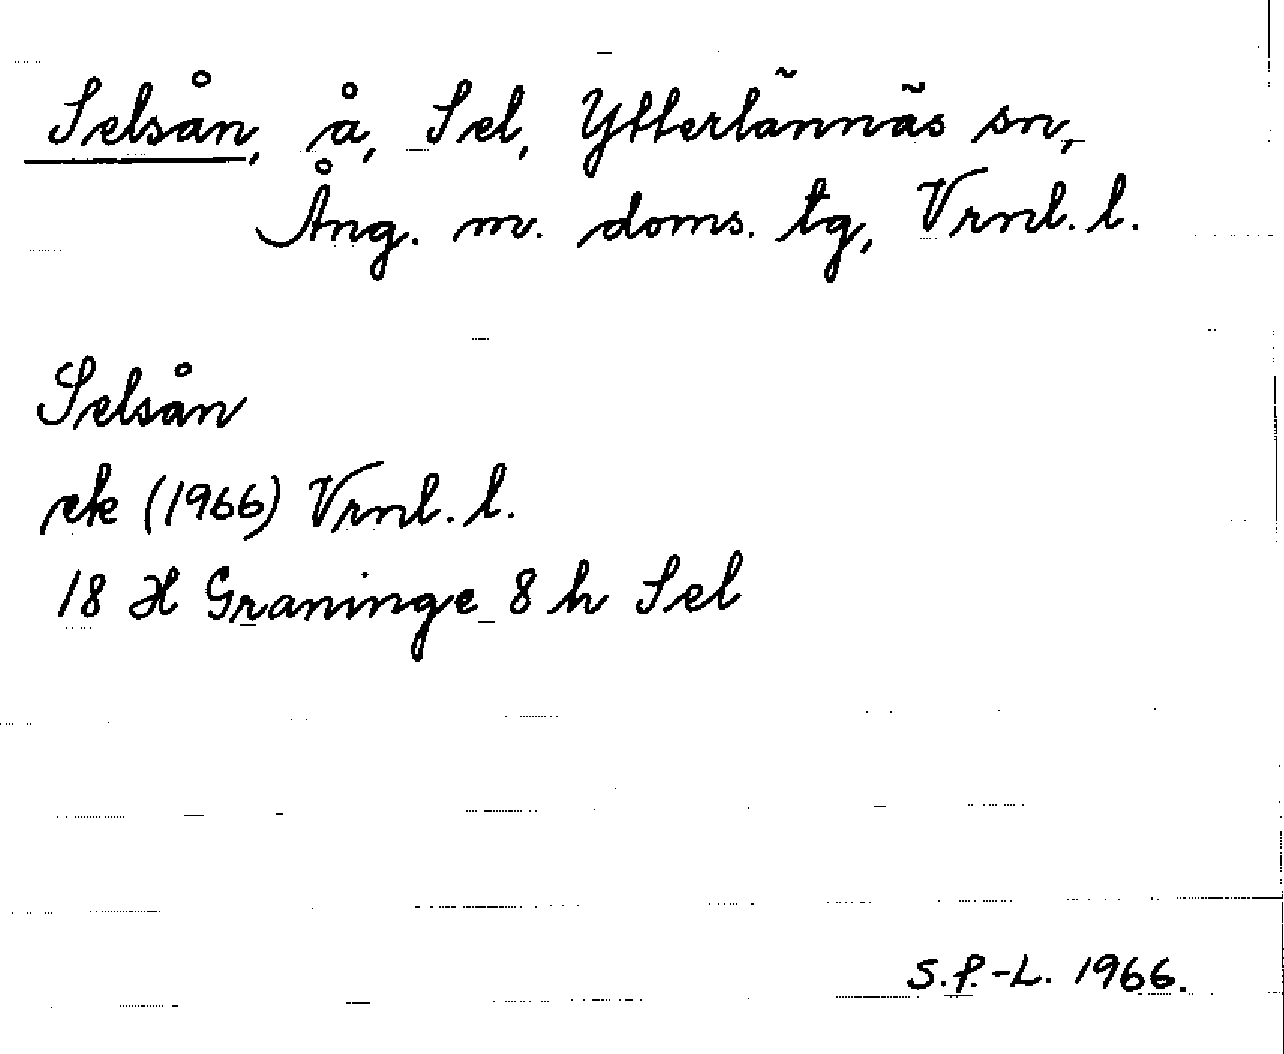 Selsån, å, Sel, Ytterlännäs sn,
Ång. m. doms. tg, Vrnl. l.
Selsån
ek (1966) Vrnl. l.
18 H Graninge 8 h Sel
S.P.-L. 1966.